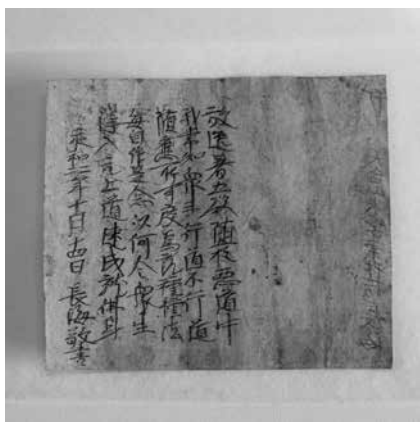 放逸著五欲堕於惡道中
我常知衆生行道不行道
随應所可度為説種種法
毎自作是念以何令衆生
得入无上道速成就佛身
承和二年十月十四日 長海敬書